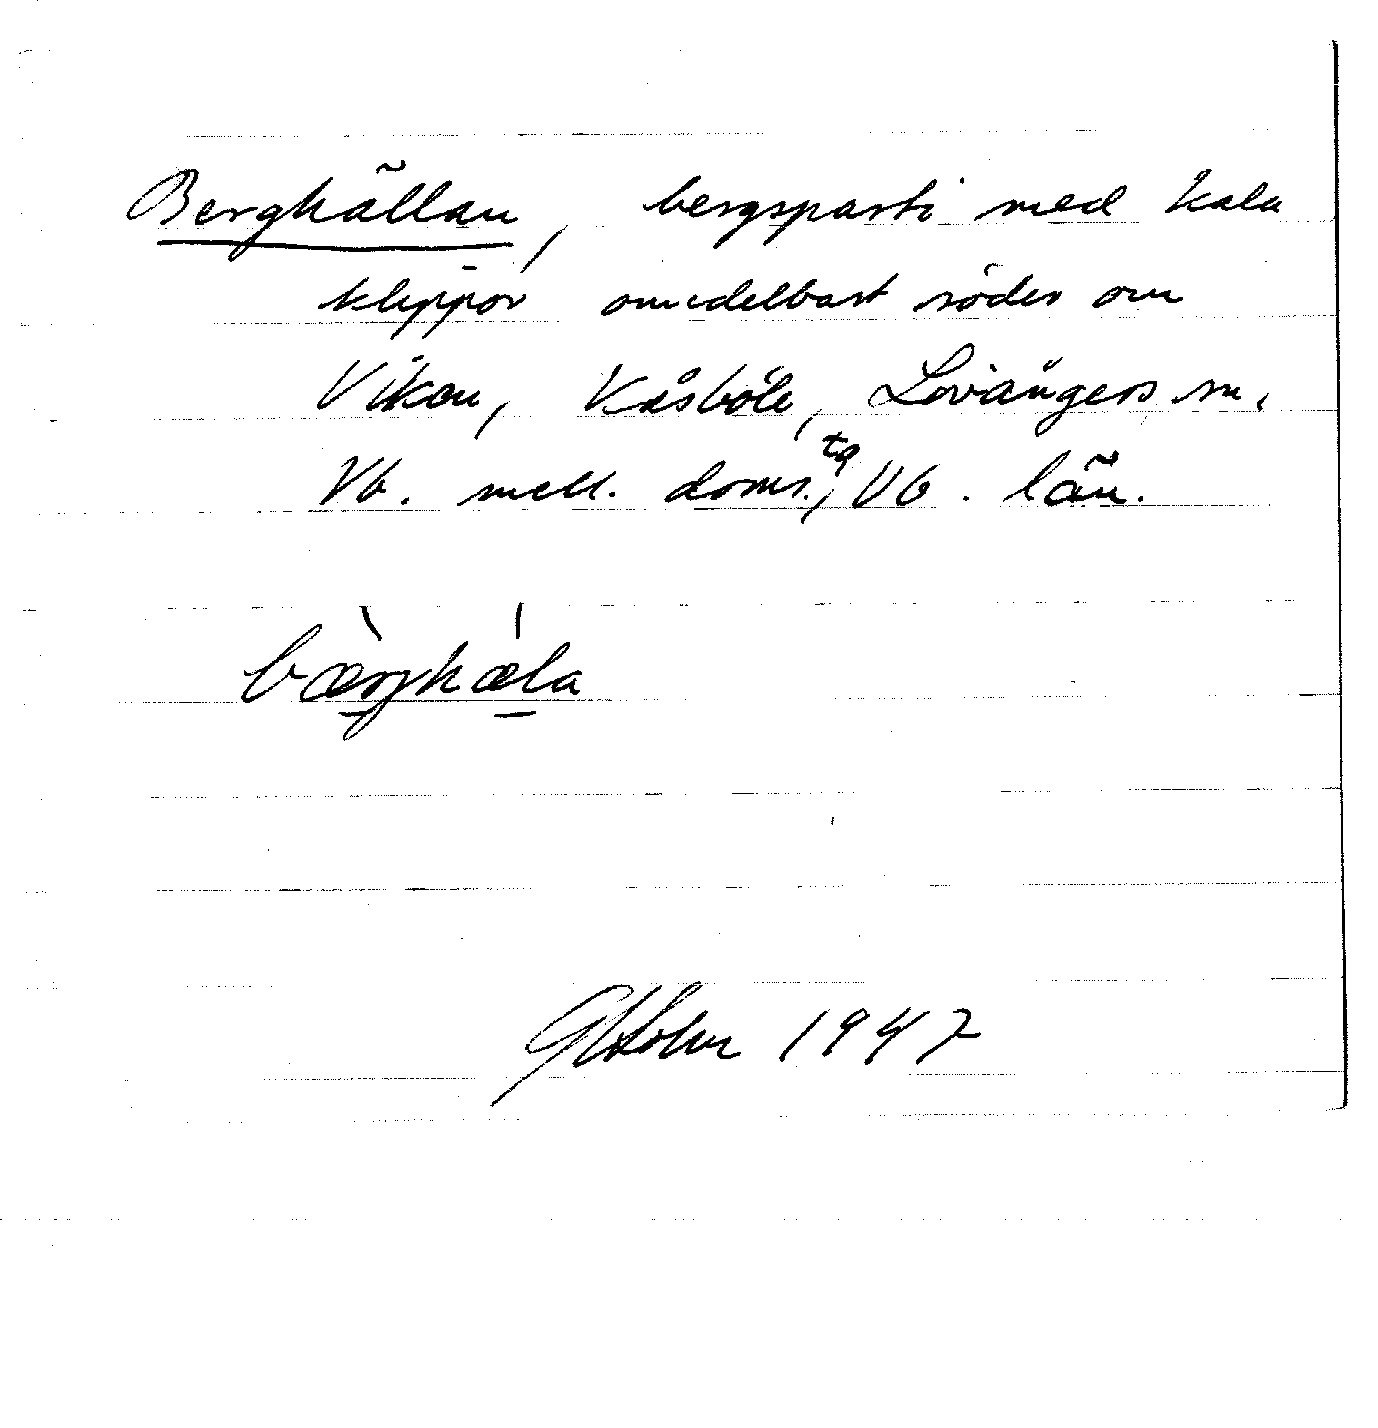 Berghällan, bergsparti med kala
klippor omedelbart söder om
Viken, Kåsböle, Lövångers sn.
Vb. mell. doms.tg, Vb. län.
bæ̀rghǽla
1947